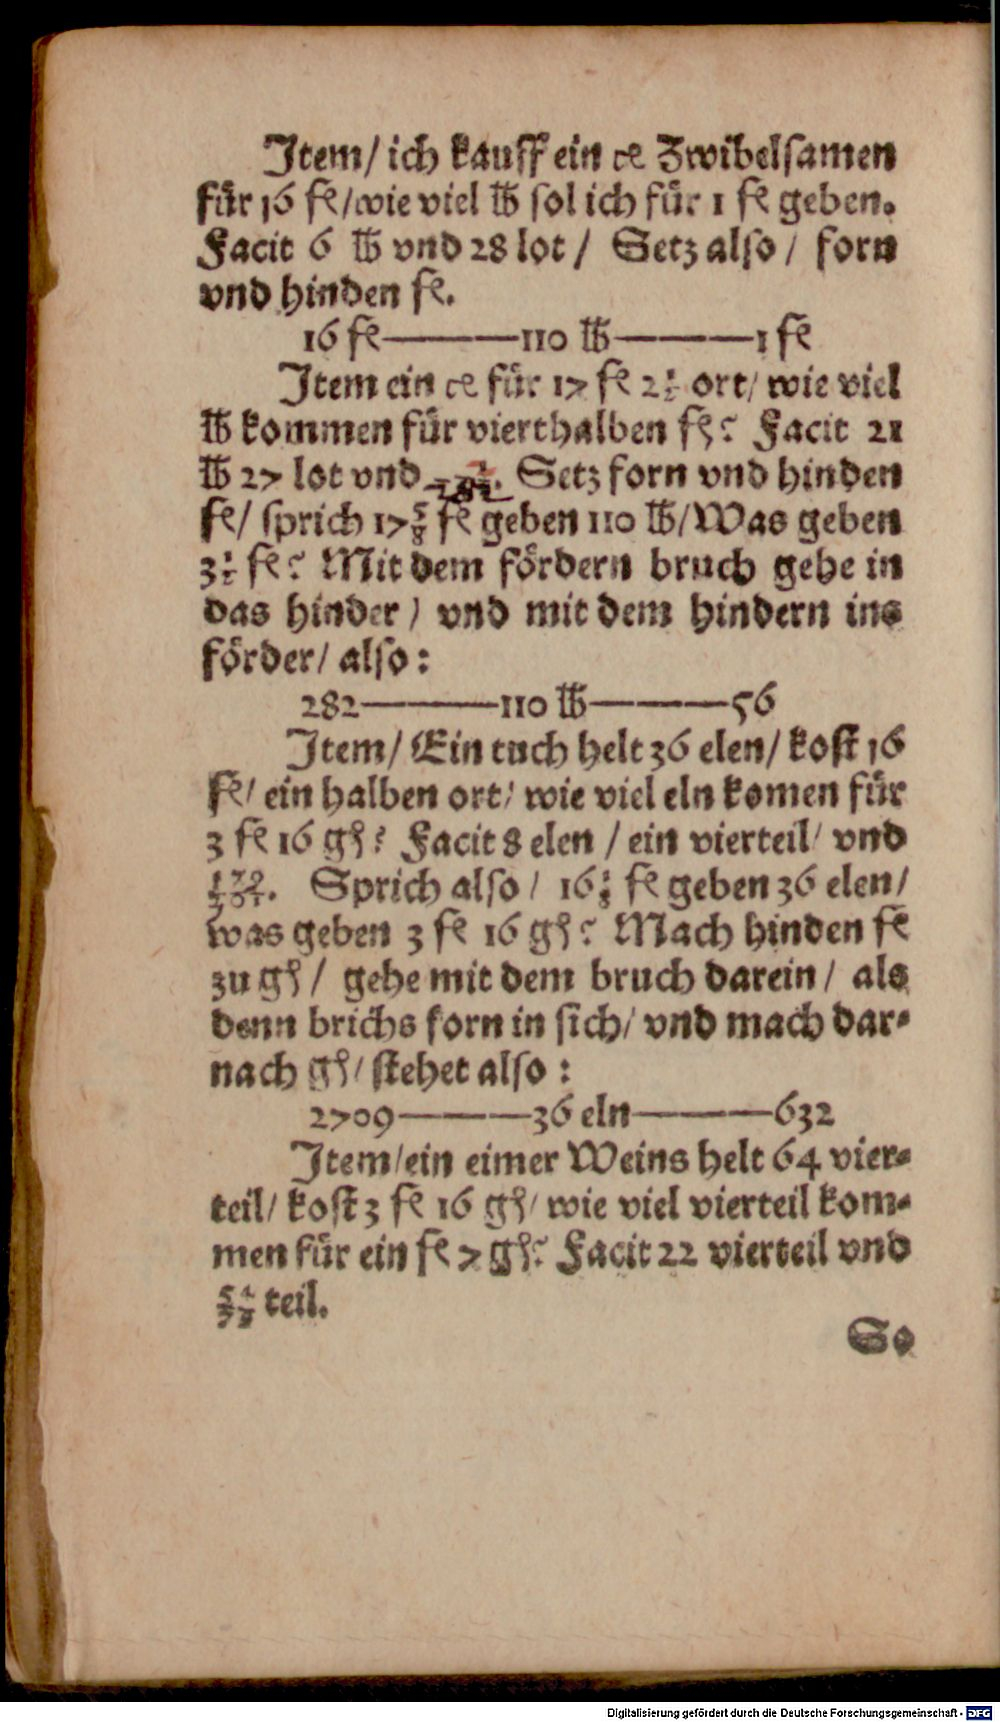 Item/ ich kauff ein ꝛe Zwibelsamen
für 16 fl/ wie viel ℔ sol ich für 1 fl geben.
Facit 6 ℔ vnd 28 lot / Setz also / forn
vnd hinden fl.
16 fl———110 ℔———1 fl
Item ein ꝛe für 17 fl 2½ ort/ wie viel
℔ kommen für vierthalben fl? Facit 21
℔ 27 lot vnd Setz forn vnd hinden
fl/ sprich 17⅝ fl geben 110 ℔/ Was geben
3½ fl? Mit dem fördern bruch gehe in
das hinder / vnd mit dem hindern ins
förder/ also:
282———110 ℔———56
Item/ Ein tuch helt 36 elen/ kost 16
fl/ ein halben ort/ wie viel eln komen für
3 fl 16 gß? Facit 8 elen / ein vierteil/ vnd
Sprich also / 16⅛ fl geben 36 elen/
was geben 3 fl 16 gß? Mach hinden fl
zu gß / gehe mit dem bruch darein / als
denn brichs forn in sich/ vnd mach dar-
nach gß/ stehet also:
2709———36 eln———632
Item/ ein eimer Weins helt 64 vier-
teil/ kost 3 fl 16 gß/ wie viel vierteil kom-
men für ein fl 7 gß? Facit 22 vierteil vnd
teil.
So
Digitalisierung gefördert durch die Deutsche Forschungsgemeinschaft - DFG